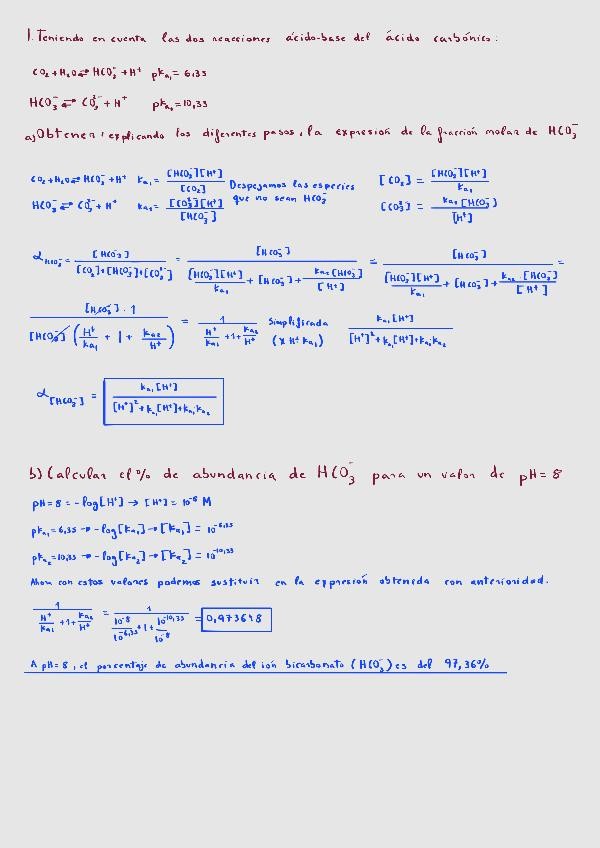 1. Teniendo en cuenta las dos reacciones ácido-base del ácido carbónico:
CO₂ + H₂O ⇌ HCO₃⁻ + H⁺ pKa₁ = 6,35
HCO₃⁻ ⇌ CO₃²⁻ + H⁺ pKa₂ = 10,33
a) Obtener, explicando los diferentes pasos, la expresión de la fracción molar de HCO₃⁻
CO₂ + H₂O ⇌ HCO₃⁻ + H⁺ Ka₁ = [HCO₃⁻][H⁺] / [CO₂] Despejamos las especies [CO₂] = [HCO₃⁻][H⁺] / Ka₁
HCO₃⁻ ⇌ CO₃²⁻ + H⁺ Ka₂ = [CO₃²⁻][H⁺] / [HCO₃⁻] que no sean HCO₃⁻ [CO₃²⁻] = Ka₂ [HCO₃⁻] / [H⁺]
α HCO₃⁻ = [HCO₃⁻] / [CO₂]+[HCO₃⁻]+[CO₃²⁻] = [HCO₃⁻] / [HCO₃⁻][H⁺]/Ka₁ + [HCO₃⁻] + Ka₂[HCO₃⁻]/[H⁺] = [HCO₃⁻] / [HCO₃⁻][H⁺]/Ka₁ + [HCO₃⁻] + Ka₂·[HCO₃⁻]/[H⁺] =
[HCO₃⁻]·1 / [HCO₃⁻] (H⁺/Ka₁ + 1 + Ka₂/H⁺) = 1 / H⁺/Ka₁ + 1 + Ka₂/H⁺ Simplificada (x H⁺ Ka₁) Ka₁[H⁺] / [H⁺]² + Ka₁[H⁺] + Ka₁·Ka₂
α [HCO₃⁻] = Ka₁[H⁺] / [H⁺]² + Ka₁[H⁺] + Ka₁ Ka₂
b) Calcular el % de abundancia de HCO₃⁻ para un valor de pH = 8
pH = 8 = -log[H⁺] → [H⁺] = 10⁻⁸ M
pKa₁ = 6,35 → -log[Ka₁] → [Ka₁] = 10⁻⁶'³⁵
pKa₂ = 10,33 → -log[Ka₂] → [Ka₂] = 10⁻¹⁰'³³
Ahora con estos valores podemos sustituir en la expresión obtenida con anterioridad.
1 / H⁺/Ka₁ + 1 + Ka₂/H⁺ = 1 / 10⁻⁸/10⁻⁶'³⁵ + 1 + 10⁻¹⁰'³³/10⁻⁸ = 0,973618
A pH = 8, el porcentaje de abundancia del ión bicarbonato (HCO₃⁻) es del 97,36%